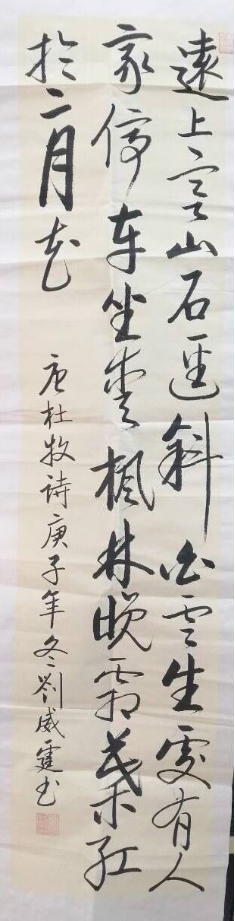 遠上寒山石徑斜白雲生處有人
家停車坐愛楓林晚霜葉紅
於二月花
唐杜牧詩庚子年冬劉威霆书